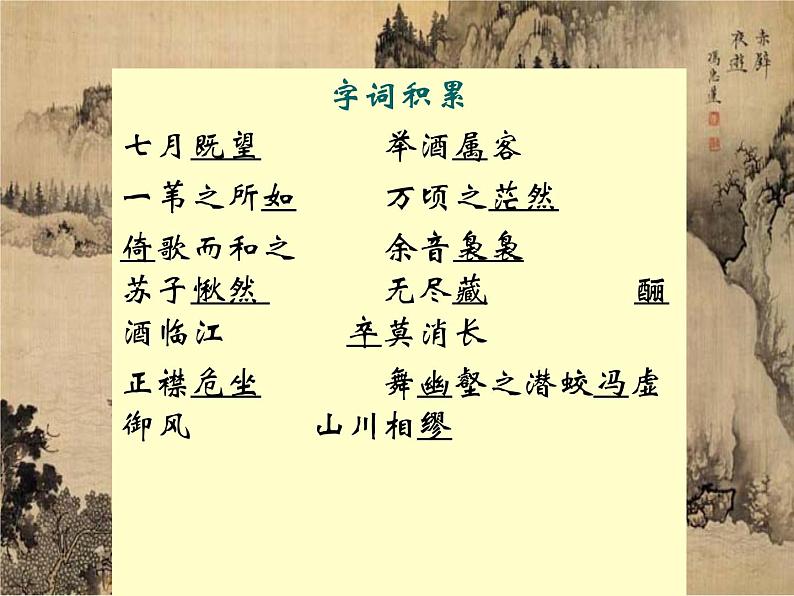 赤壁
夜遊
字词积累
七月既望 举酒属客
一苇之所如 万顷之茫然
倚歌而和之 余音袅袅
苏子愀然 无尽藏 酾
酒临江 卒莫消长
正襟危坐 舞幽壑之潜蛟冯虚
御风 山川相缪